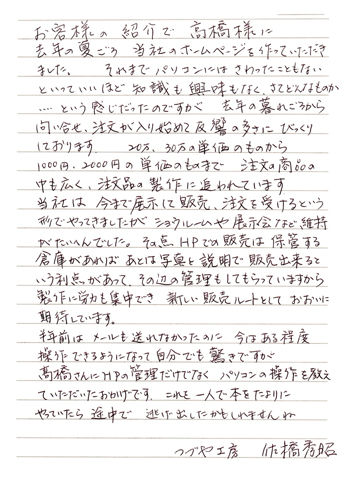 お客様の紹介で 高橋様に
去年の夏ごろ 当社のホームページを作っていただき
ました。 それまでパソコンにはさわったこともない
といっていいほど 知識も興味もなく、さてどんなものか
…. という感じだったのですが 去年の暮れごろから
問い合せ、注文が入り始めて反響の多さに びっくり
しております。 20万、30万の単価のものから
1000円、2000円の単価のものまで 注文の商品の
中も広く、注文品の製作に追われています
当社は 今まで展示して販売、注文を受けるという
形でやってきましたが ショウルームや展示会など維持
がたいへんでした。その点 HPでの販売は 保管する
倉庫があれば あとは写真と説明で販売出来ると
いう利点があって、その辺の管理もしてもらっていますから
製作に労力も集中でき 新しい販売ルートとして おおいに
期待しています。
半年前は メールも送れなかったのに 今はある程度
操作できるようになって自分でも驚きですが
高橋さんにHPの管理だけでなく パソコンの操作を教え
ていただいたおかげです. これを一人で本をたよりに
やっていたら 途中で 逃げ出したかもしれませんね
つづや工房 佐橋秀昭